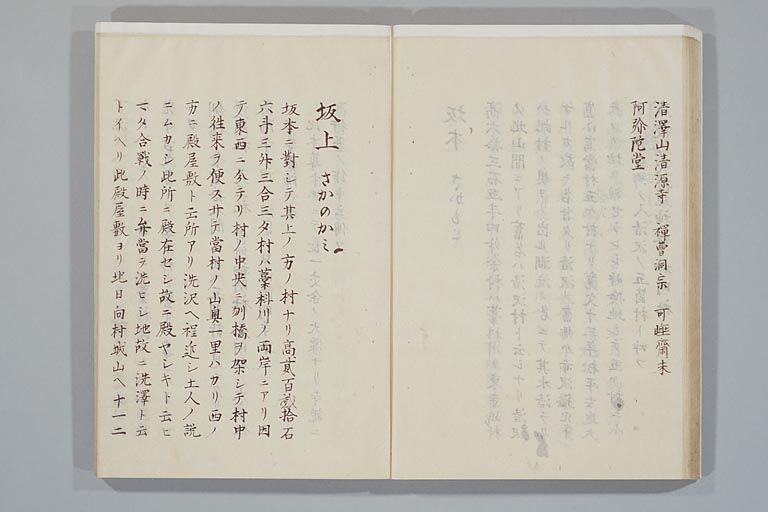 清澤山清源寺 禅曹洞宗 可睡齋末
阿弥陀堂
坂上 さかのかミ
坂本ニ對シテ其上ノ方ノ村ナリ高貳百貳拾石
六斗三升三合三夕村ハ藁科川ノ両岸ニアリ因
テ東西ニ分テリ村ノ中央ニ刎橋ヲ架シテ村中
ノ往来ヲ便スサテ當村ノ山奥一里ハカリ西ノ
方ニ殿屋敷ト云所アリ洗沢ヘ程近シ土人ノ説
ニムカシ此所ニ殿在セシ故ニ殿ヤシキト云ヒ
マタ合戦ノ時ニ弁當ヲ洗ヒシ地故ニ洗澤ト云
トイヘリ此殿屋敷ヨリ北日向村城山ヘ十一二